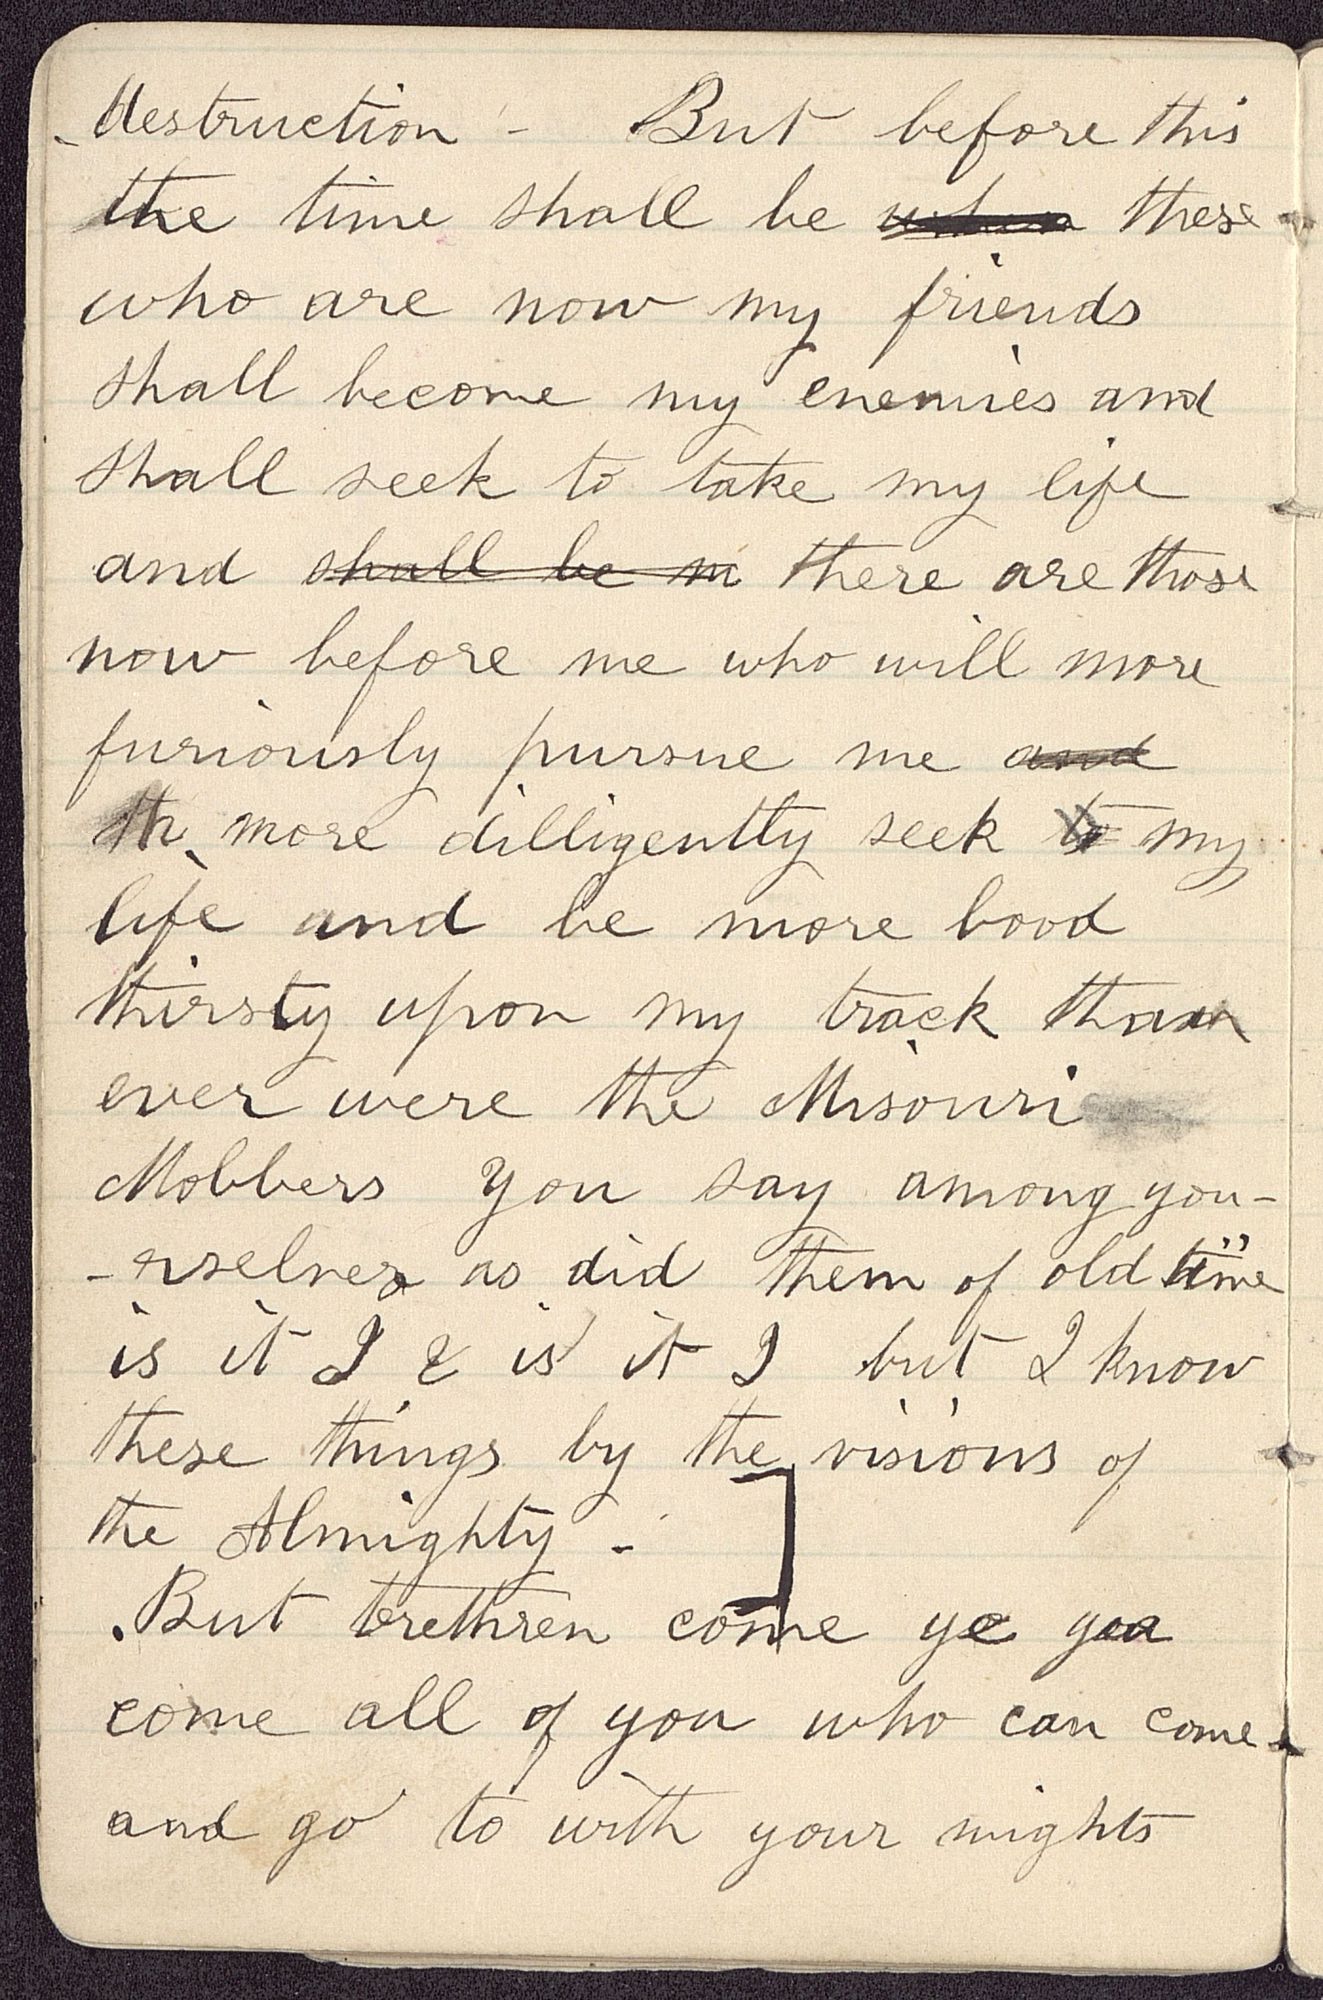 -destruction - But before this
the time shall be when these
who are now my friends
shall become my enemies and
shall seek to take my life
and shall be in there are those
now before me who will more
furiously pursue me and
th more dilligently seek to my
life and be more bood
thirsty upon my track than
ever were the Misouri
Mobbers you say among you-
-erselves as did them of old time
is it I & is it I but I know
these things by the visions of
the Almighty - ]
But brethren come ye yea
come all of you who can come
and go to with your mights